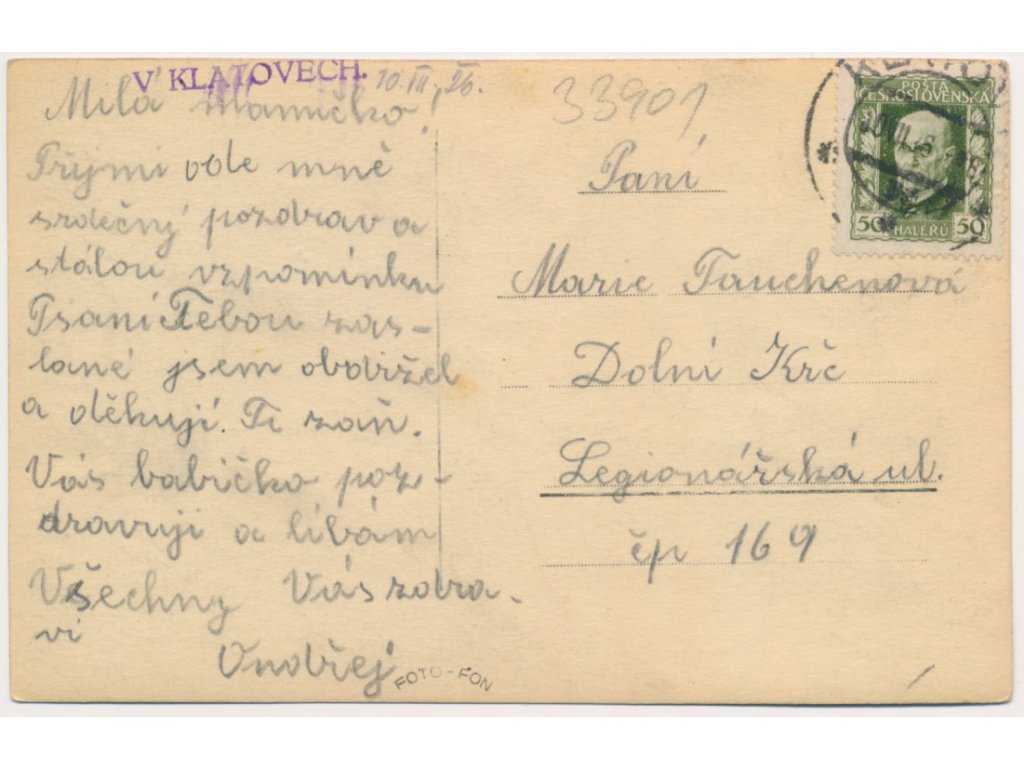 V KLATOVECH. 10 III, 26.
Milá mamičko!
Přijmi ode mně
srdečný pozdrav a
stálou vzpomínku
Psaní Tebou zas-
lané jsem obdržel
a děkuji. Ti zaň.
Vás babičko poz-
dravuji a líbám
Všechny Vás zdra-
ví
Ondřej
FOTO-FON
33901
Paní
Marie Tauchenová
Dolní Krč
Legionářská ul.
čp 169
POŠTA
ČESKOSLOVENSKÁ
50 50
HALÉŘŮ